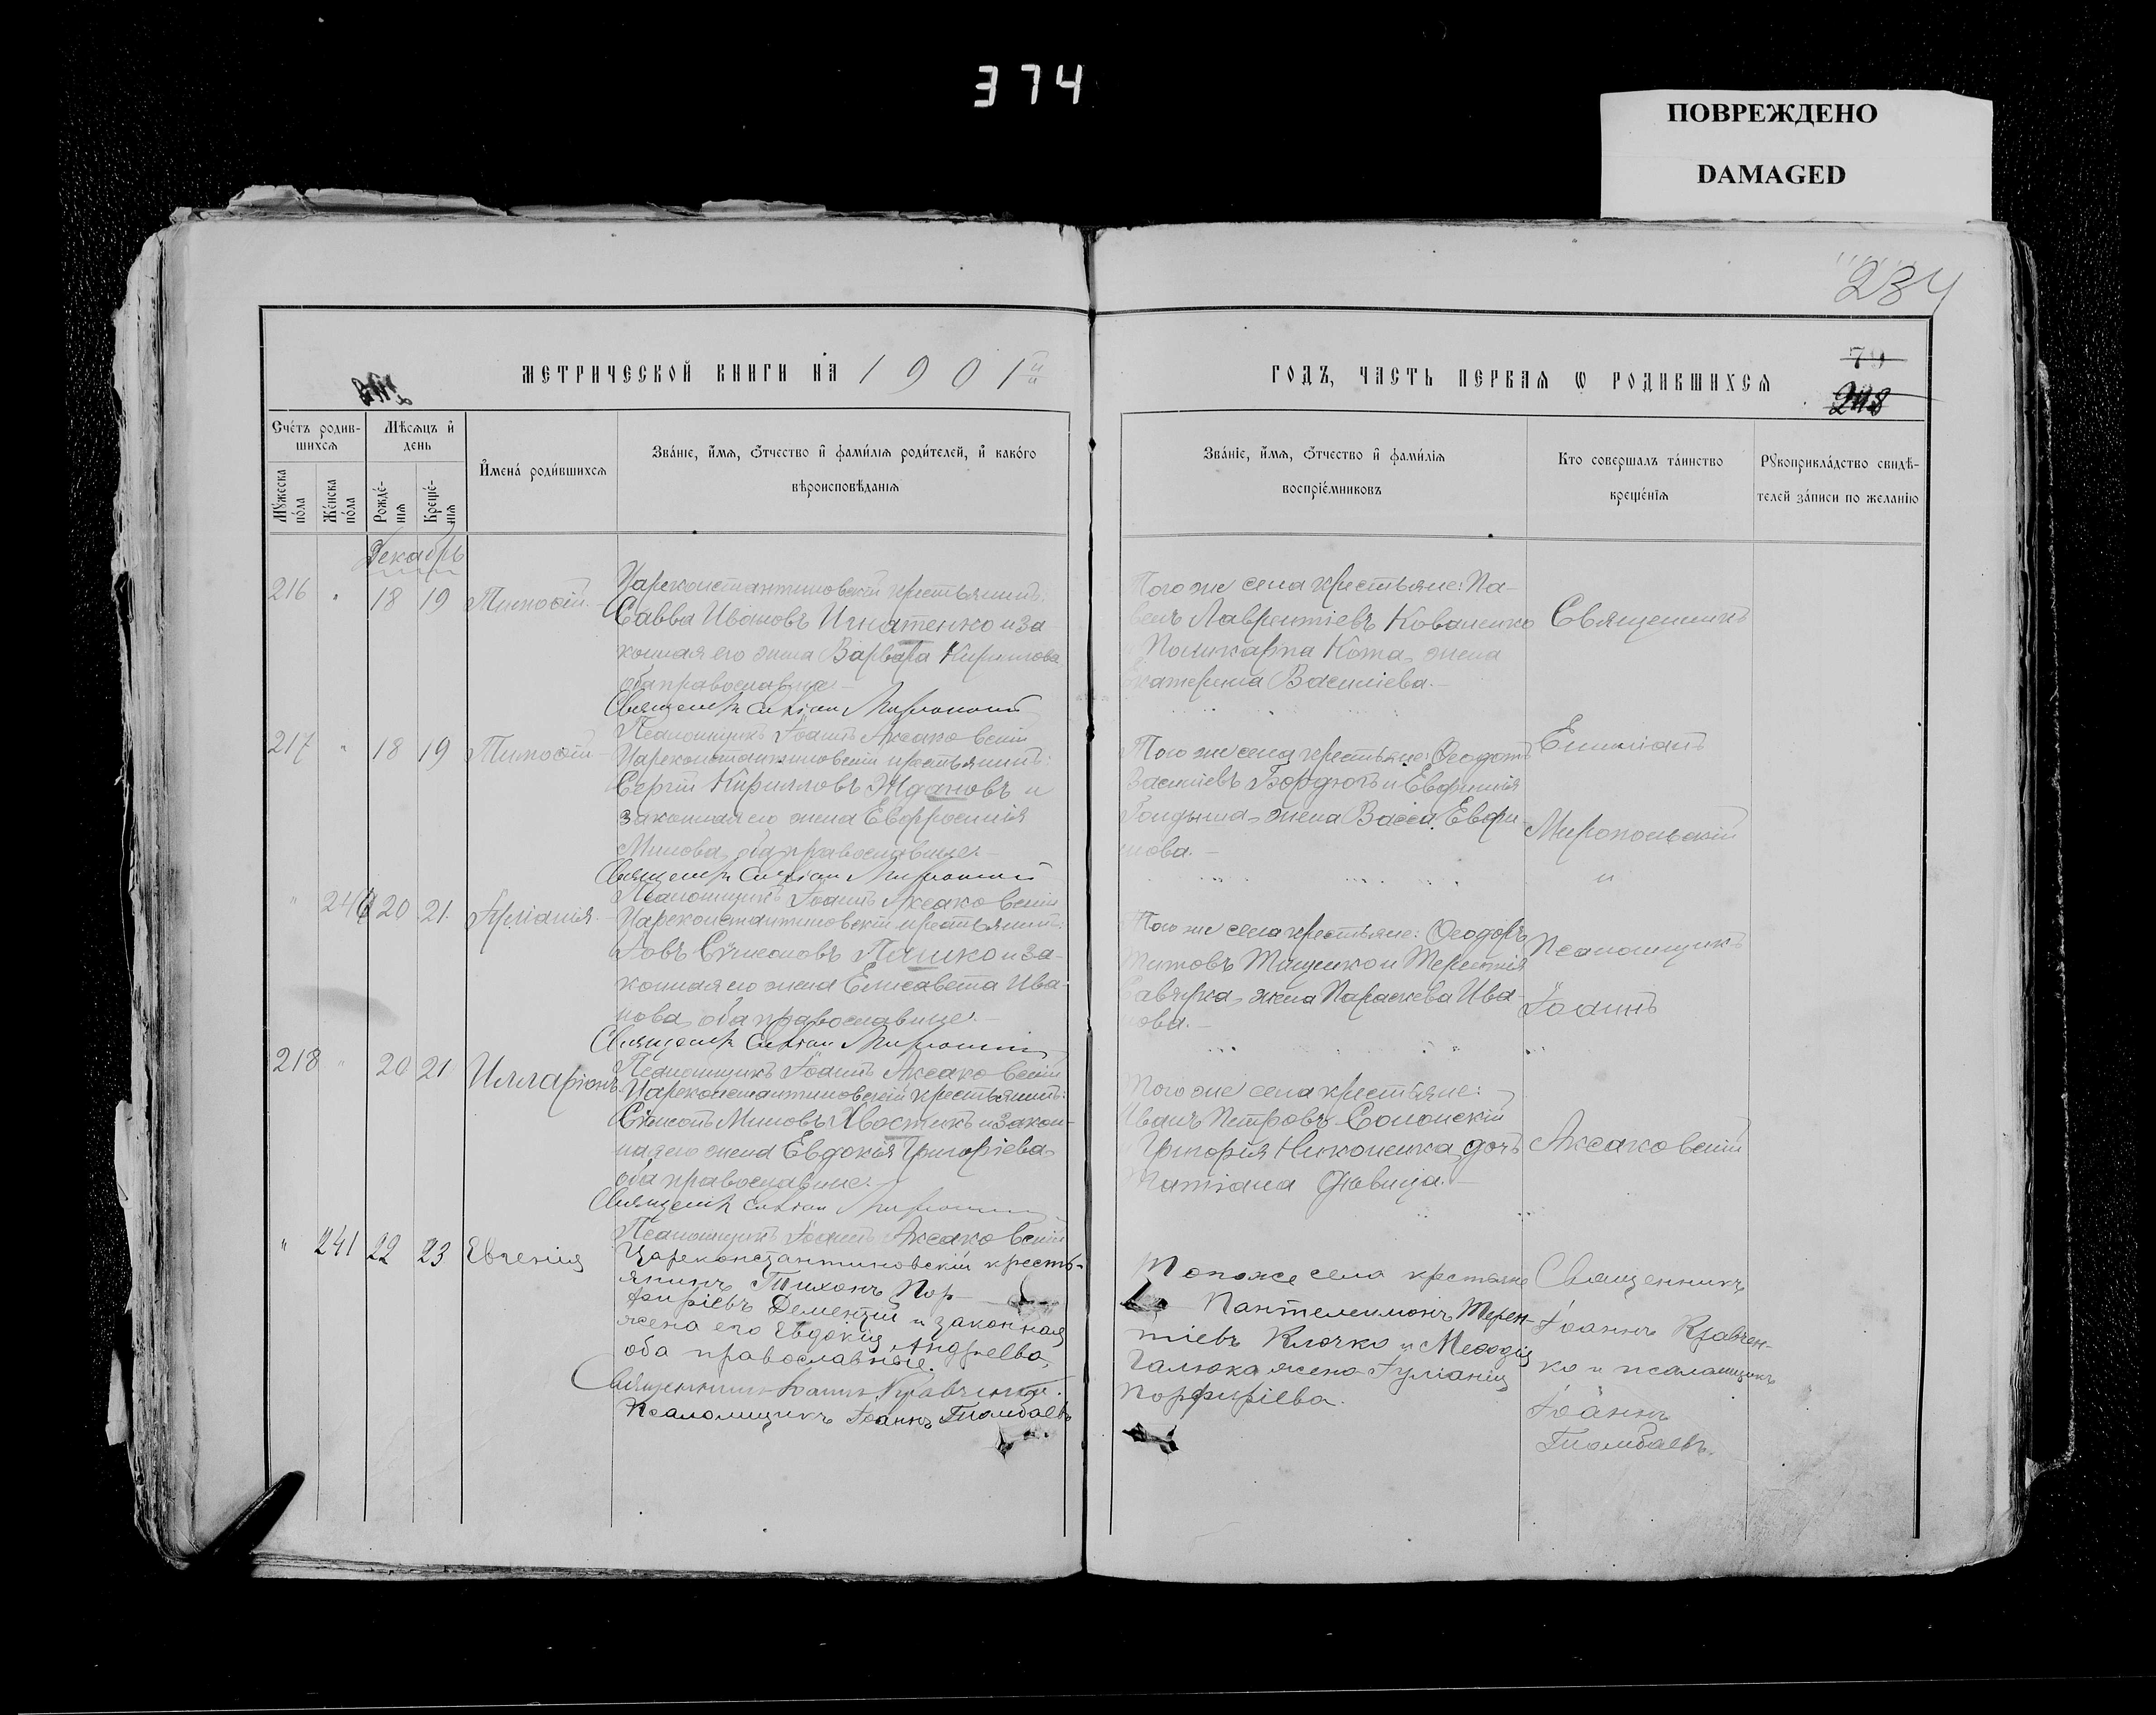 374
ПОВРЕЖДЕНО
DAMAGED
234
МЕТРИЧЕСКОЙ КНИГИ НА 1901й
ГОДЪ, ЧАСТЬ ПЕРВАЯ Ѡ РОДИВШИХСЯ
79
248
Счетъ родив-
шихся
Мужеска
пола
Женска
пола
Мѣсяцъ и
день
Рожде-
нія
Креще-
нія
Имена родившихся
Званіе, имя, отчество и фамилія родителей, и какого
вѣроисповѣданія
Званіе, имя, отчество и фамилія
воспріемниковъ
Кто совершалъ таинство
крещенія
Рукоприкладство свидѣ-
телей записи по желанію
Декабрь
216 " 18 19 Тимоѳій.
Цареконстантиновскій крестьянинъ:
Савва Ивановъ Игнатенко и за-
конная его жена Варвара Кириллова,
оба православные.
Священникъ
Псаломщикъ Іоаннъ Аксаковскій
Того же села крестьяне: Па-
велъ Лаврентіевъ Коваленко
Поликарпа Кота, жена
Екатерина Василіева.
217 " 18 19 Тимоѳій
Цареконстантиновскій крестьянинъ:
Сергій Кирилловъ Ждановъ и
законная его жена Евфросинія
Минова, оба православные.
Священникъ
Псаломщикъ Іоаннъ Аксаковскій
Того же села крестьяне: Ѳеодотъ
Василіевъ Бордюгъ и Евфимія
жена Васса Евфи-
мова.
" 240 20 21
Цареконстантиновскій крестьянинъ:
Іовъ Сѵмеоновъ Пашко и за-
конная его жена Елисавета Ива-
нова, оба православные.
Священникъ
Псаломщикъ Іоаннъ Аксаковскій
Того же села крестьяне: Ѳеодоръ
Титовъ Тищенко и Терентія
жена Параскева Ива-
нова.
218 " 20 21 Илларіонъ
Цареконстантиновскій крестьянинъ:
Сѵмеонъ Миновъ Хвостикъ и закон-
ная его жена Евдокія Григоріева,
оба православные.
Священникъ
Псаломщикъ Іоаннъ Аксаковскій
Того же села крестьяне:
Иванъ Петровъ Солонскій
Григорія Никоненка дочь
Татіана дѣвица.
Священникъ
Миропольскій
"
Псаломщикъ
Іоаннъ
Аксаковскій
" 241 22 23 Евгенія
Цареконстантиновскій кресть-
янинъ Тихонъ Пор-
фиріевъ Дементій и законная
жена его Евдокія Андреева,
оба православные.
Священникъ Іоаннъ Кравченко.
Псаломщикъ Іоаннъ
Того же села крестьяне
Пантелеимонъ Терен-
тіевъ Клочко и Меѳодія
Галюка жена Іуліанія
Порфиріева.
Священникъ
Іоаннъ Кравчен-
ко и псаломщикъ
Іоаннъ